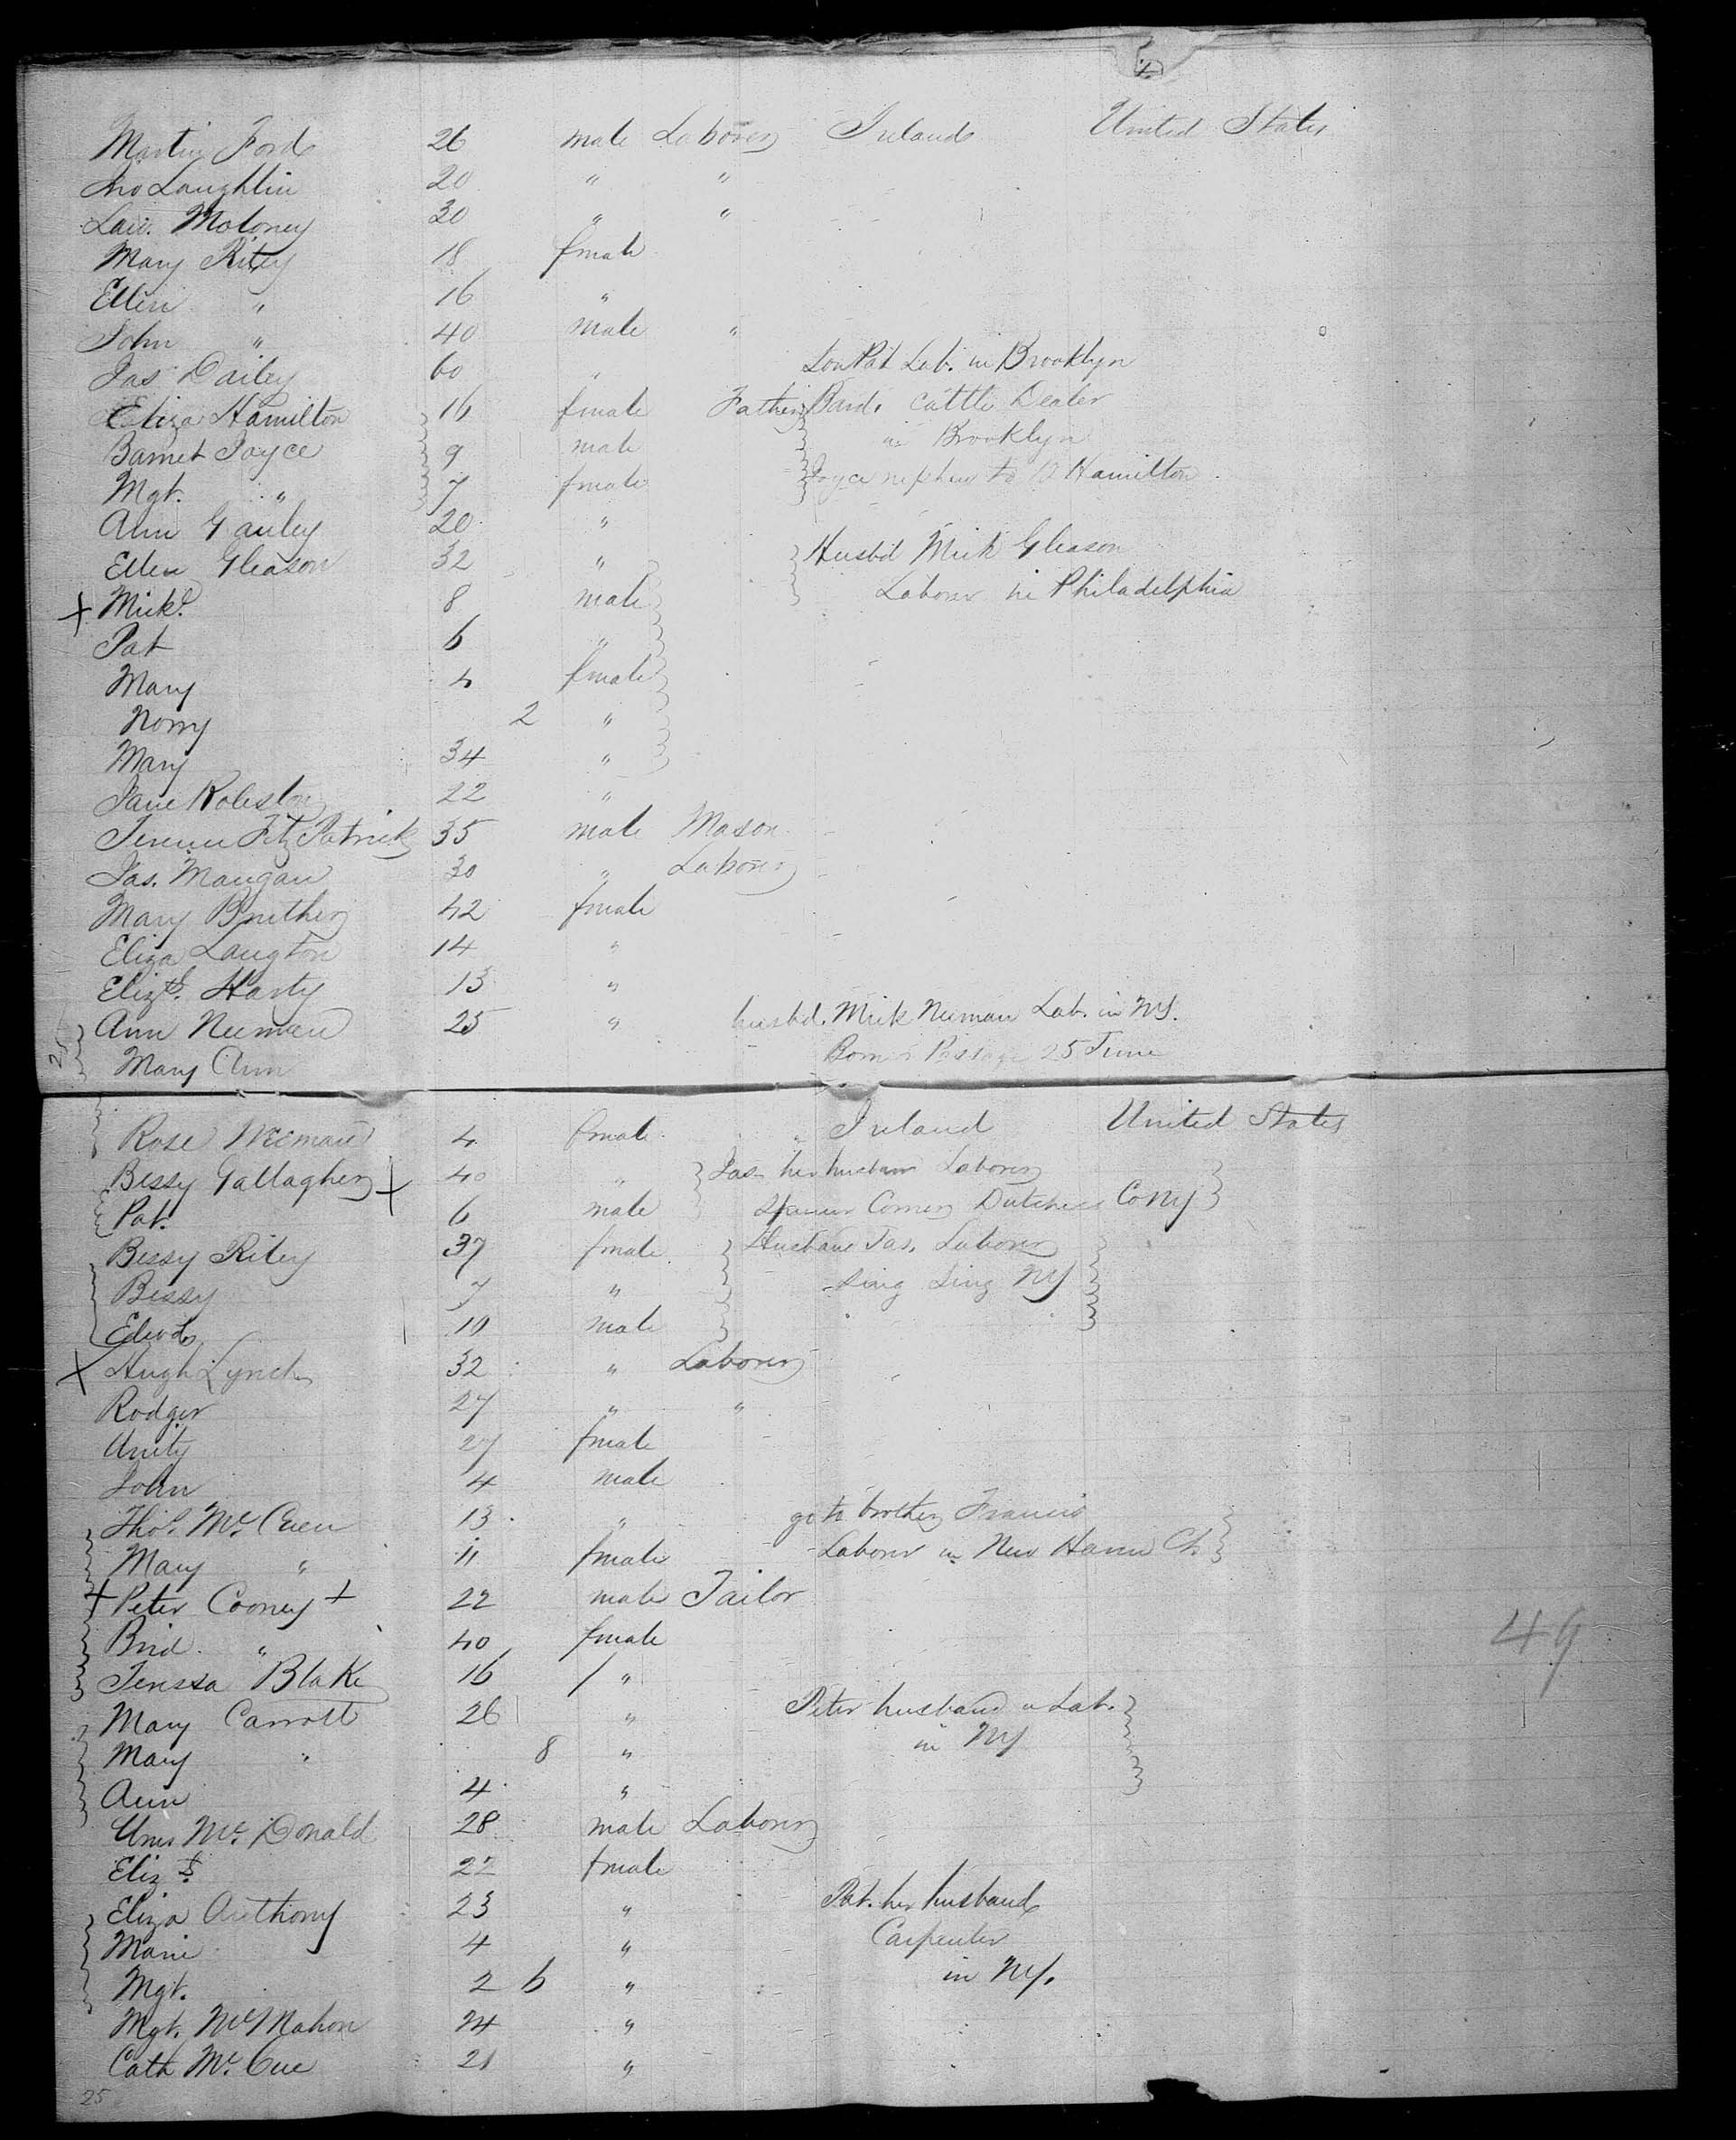 Martin Ford 26 male Laborer Ireland United States
Jno Laughlin 20 " "
Lau. Moloney 30 " "
Mary Riley 18 fmale
Ellen " 16 "
John " 40 male "
Jas Dailey 60 " Son Pat Lab. in Brooklyn
Eliza Hamilton 16 fmale Father Bard. Cattle Dealer
Barnet Joyce 9 male in Brooklyn
Mgt. " 7 fmale Joyce nephew to Hamilton
Ann Ganley 20 "
Ellen Gleason 32 " Husbd Mick Gleason
+ Mickl 8 male Laborer in Philadelphia
Pat 6 "
Mary 4 fmale
Norry 2 "
Mary 34 "
Jane Roleston 22 "
Terence Fitz Patrick 35 male Mason
Jas. Mangan 30 " Laborer
Mary 42 fmale
Eliza Langton 14 "
Elizth. Harty 13 "
Ann Neeman 25 " husbd. Mick Neeman Lab. in NY.
Mary Ann Born Passage 25 June
25
Rose Neeman 4 fmale " Ireland United States
Bessy Gallagher + 40 " Jas. her husband Laborer
Pat. 6 male Corners Dutchess Co NY
Bessy Riley 37 fmale Husband Jas. Laborer
Bessy 7 " Sing Sing NY
Edwd 10 male
+ Hugh Lynch 32 " Laborer
Rodger 27 " "
Unity 27 fmale
John 4 male
Thos. Mc Cuen 13 " go to brother Francis
Mary " 11 fmale Laborer in New Haven Ct
+ Peter Cooney + 22 male Tailor
Brid. " 40 fmale
Teressa Blake 16 "
Mary Carroll 26 " Peter husband a Lab.
Mary " 8 " in NY
Ann 4 "
Mc. Donald 28 male Laborer
Elizth 22 fmale
Eliza Anthony 23 " Pat. her husband
Maria 4 " Carpenter
Mgt. 2 6 " in NY.
Mgt. McMahon 24 "
Cath Mc. Cue 21 "
25
49